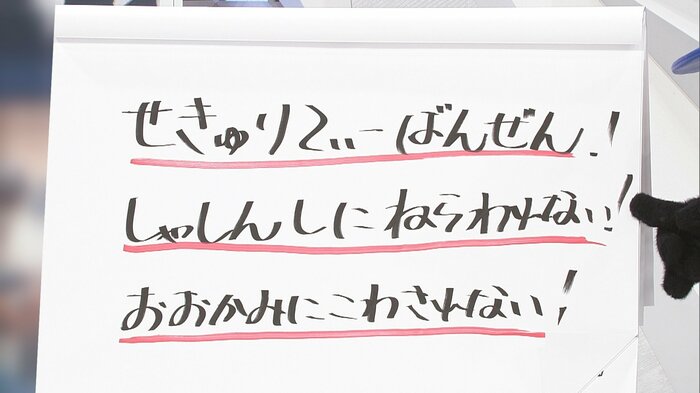 せきゅりてぃーばんぜん!
しゃしんしにねらわれない!
おおかみにこわされない!